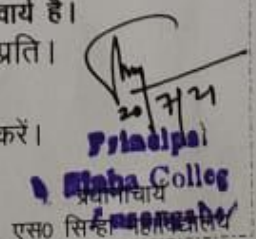 वार्य है।
प्रति।
20/7/21
करें।
Principal
Sinha Colleg
प्रधानाचार्य
एस० सिन्हा महाविद्यालय